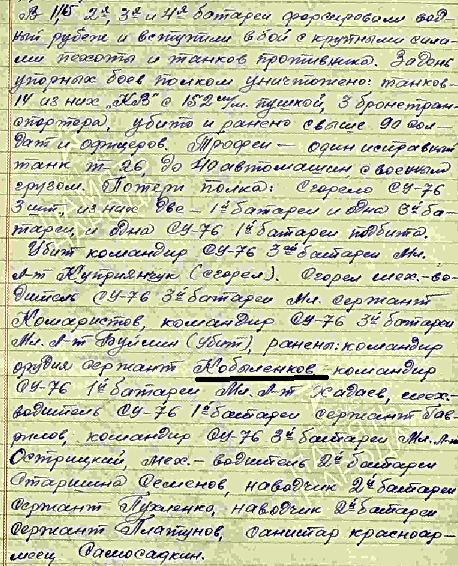 В 1/5 2ая, 3я и 4я батареи форсировали вод-
ный рубеж и вступили в бой с крупными сила-
ми пехоты и танков противника. За день
упорных боев полком уничтожено: танков-
14 из них "КВ" с 152 м/м. пушкой, 3 бронетран-
спортера, убито и ранено свыше 90 сол-
дат и офицеров. Трофеи – один исправный
танк Т-26, до 40 автомашин с военным
грузом. Потери полка: Сгорело СУ-76
3 шт, из них две – 1й батареи и одна 3й ба-
тареи и одна СУ-76 1й батареи подбита.
Убит командир СУ-76 3ей батареи Мл.
Л-т Куприянчук (сгорел). Сгорел мех.-во-
дитель СУ-76 3й батареи Мл. Сержант
Комаристов, командир СУ-76 3й батареи
Мл. Л-т (убит), ранены: командир
орудия сержант Кобыленков командир
СУ-76 1й батареи Мл. Л-т Хадаев, мех.-
водитель СУ-76 1й батареи сержант Гав-
рилов, командир СУ-76 3й батареи Мл. Л-т
Острицкий, мех.-водитель 2й батареи
Старшина Семенов, наводчик 2й батареи
Сержант Пухленко, наводчик 2й батареи
Сержант Платунов, санитар красноар-
меец Самосадкин.